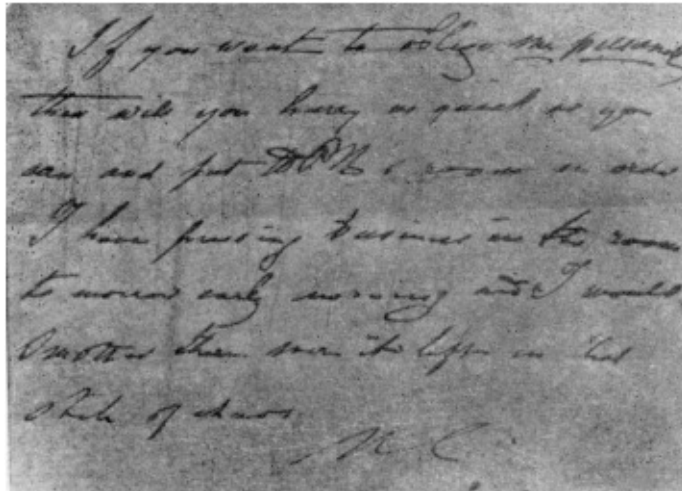 If you want to oblige me personally
then will you hurry as quick as you
can and put room in order
I have pressing business in the room
to morrow early morning and I would
it left in
State of chaos
M C